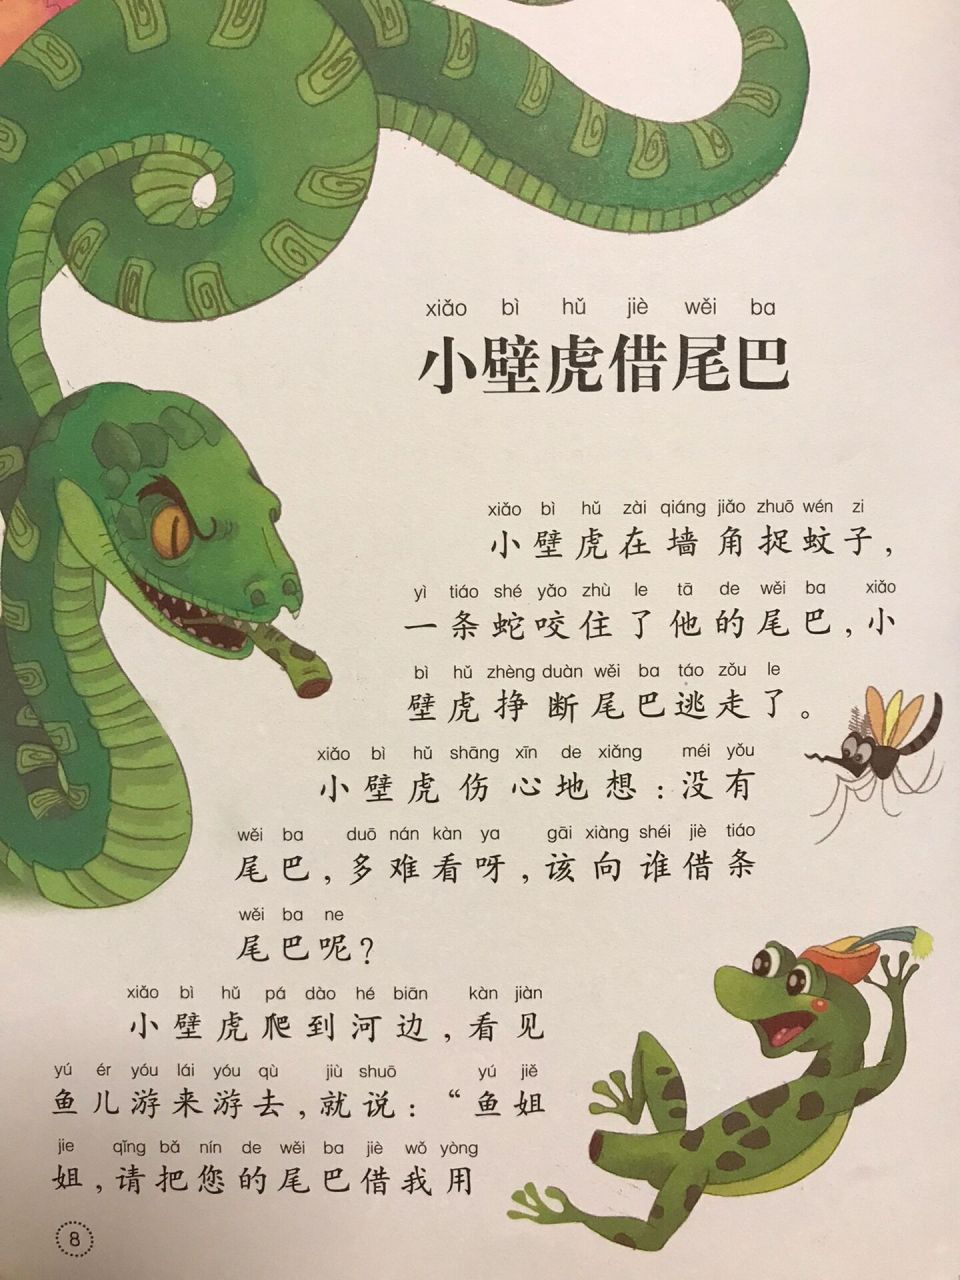 xiǎo bì hǔ jiè wěi ba
小壁虎借尾巴
xiǎo bì hǔ zài qiáng jiǎo zhuō wén zi
小壁虎在墙角捉蚊子,
yì tiáo shé yǎo zhù le tā de wěi ba xiǎo
一条蛇咬住了他的尾巴,小
bì hǔ zhèng duàn wěi ba táo zǒu le
壁虎挣断尾巴逃走了。
xiǎo bì hǔ shāng xīn de xiǎng méi yǒu
小壁虎伤心地想:没有
wěi ba duō nán kàn ya gāi xiàng shéi jiè tiáo
尾巴,多难看呀,该向谁借条
wěi ba ne
尾巴呢?
xiǎo bì hǔ pá dào hé biān kàn jiàn
小壁虎爬到河边,看见
yú ér yóu lái yóu qù jiù shuō yú jiě
鱼儿游来游去,就说:“鱼姐
jie qǐng bǎ nín de wěi ba jiè wǒ yòng
姐,请把您的尾巴借我用
8